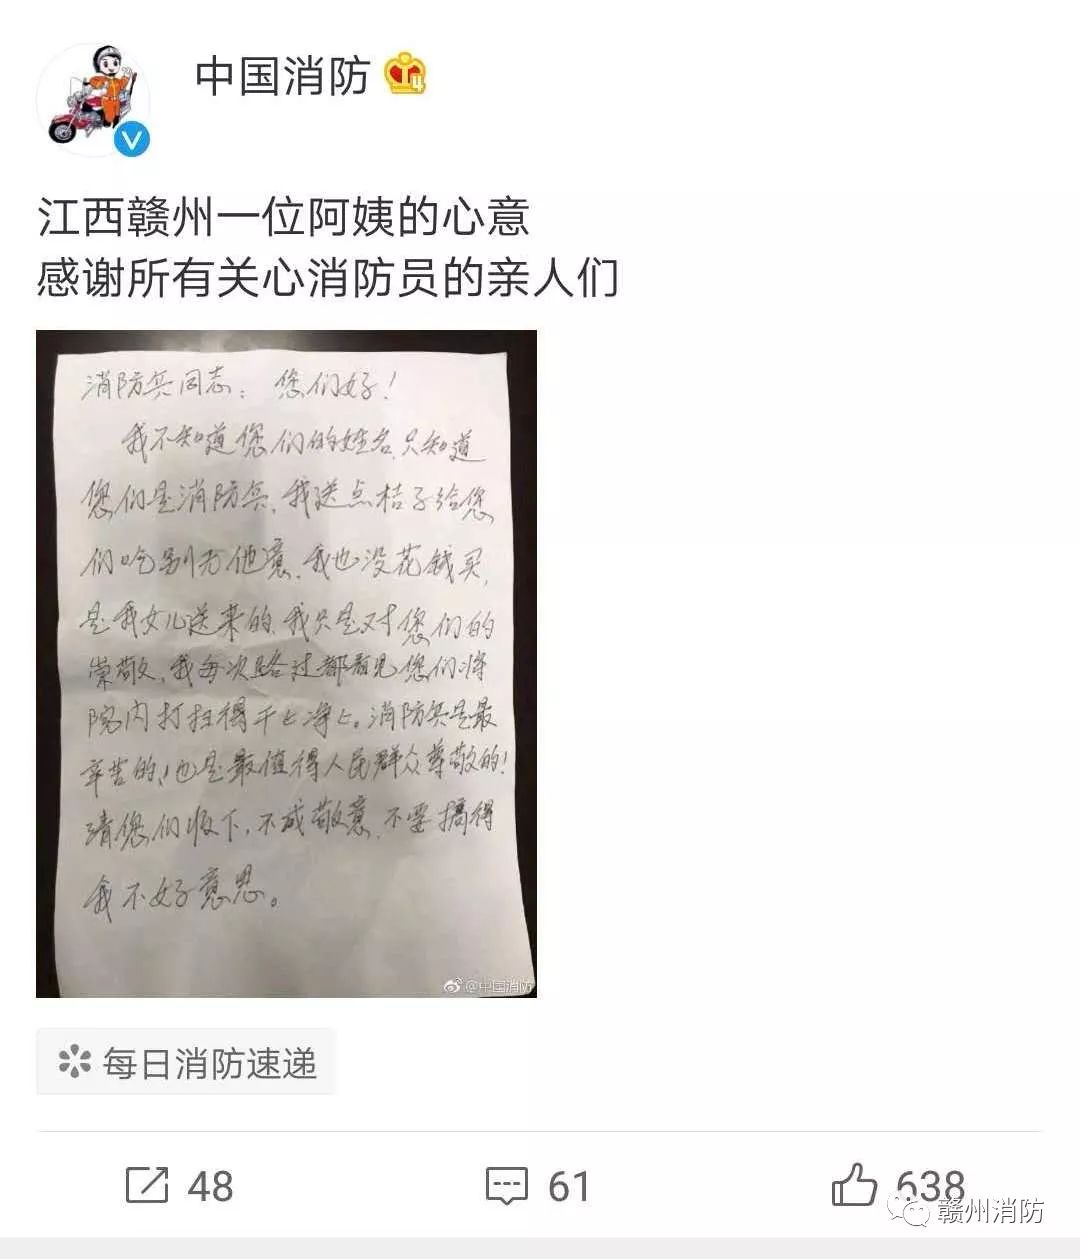 中国消防
4
江西赣州一位阿姨的心意
感谢所有关心消防员的亲人们
消防兵同志：您们好！
我不知道您们的姓名，只知道
您们是消防兵，我送点桔子给您
们吃别无他意，我也没花钱买，
是我女儿送来的，我只是对您们的
崇敬，我每次路过都看见您们将
院内打扫得干干净净。消防兵是最
辛苦的，也是最值得人民群众尊敬的！
请您们收下，不成敬意，不要搞得
我不好意思。
@中国消防
每日消防速递
48
61
638
赣州消防